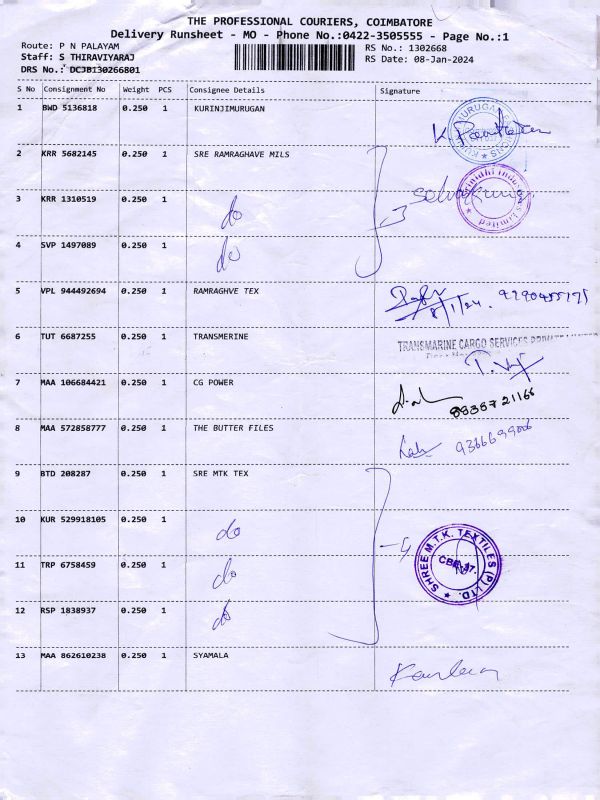 THE PROFESSIONAL COURIERS, COIMBATORE
Delivery Runsheet - MO - Phone No.:0422-3505555 - Page No.:1
Route: P N PALAYAM RS No.: 1302668
Staff: S THIRAVIYARAJ RS Date: 08-Jan-2024
DRS No.: DCJB130266801
S No Consignment No Weight PCS Consignee Details Signature
1 BWD 5136818 0.250 1 KURINJIMURUGAN
2 KRR 5682145 0.250 1 SRE RAMRAGHAVE MILS
3 KRR 1310519 0.250 1 do 3
4 SVP 1497089 0.250 1 do
5 VPL 944492694 0.250 1 RAMRAGHVE TEX
8/1/24.
6 TUT 6687255 0.250 1 TRANSMERINE TRANSMARINE CARGO SERVICES PRIVATE
7 MAA 106684421 0.250 1 CG POWER
8 MAA 572858777 0.250 1 THE BUTTER FILES
9 BTD 208287 0.250 1 SRE MTK TEX
10 KUR 529918105 0.250 1 do
4 SHREE M.T.K. TEXTILES (P) LTD.
CBE-37.
11 TRP 6758459 0.250 1 do
12 RSP 1838937 0.250 1 do
13 MAA 862610238 0.250 1 SYAMALA